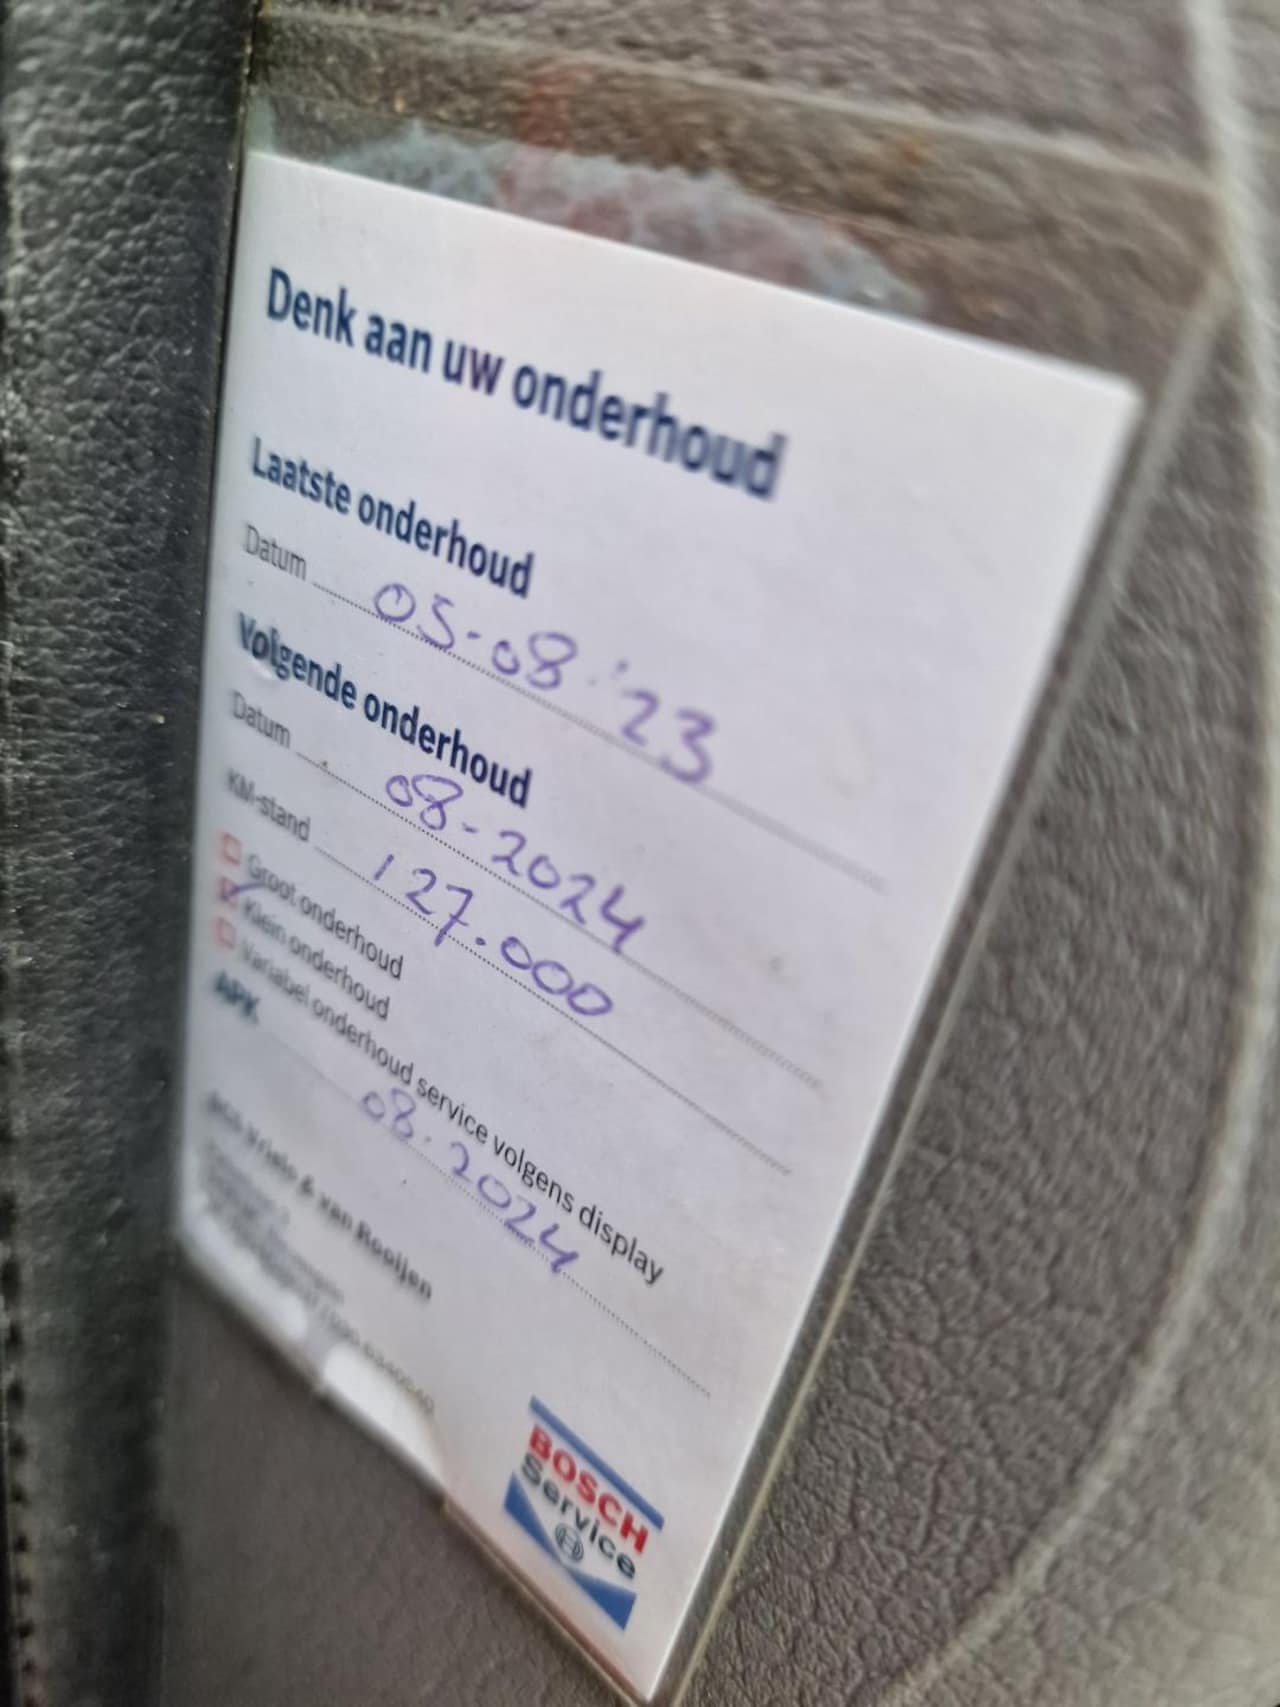 Denk aan uw onderhoud
Laatste onderhoud
Datum 05-08-'23
Volgende onderhoud
Datum 08-2024
KM-stand 127.000
Groot onderhoud
Klein onderhoud
Variabel onderhoud service volgens display
APK 08-2024
& van Rooijen
BOSCH
Service